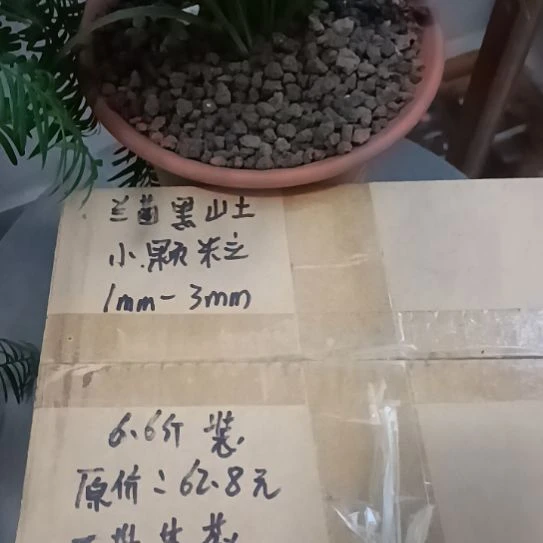 兰菌黑山土
小颗粒
1mm-3mm
6.6斤装
原价:62.8元